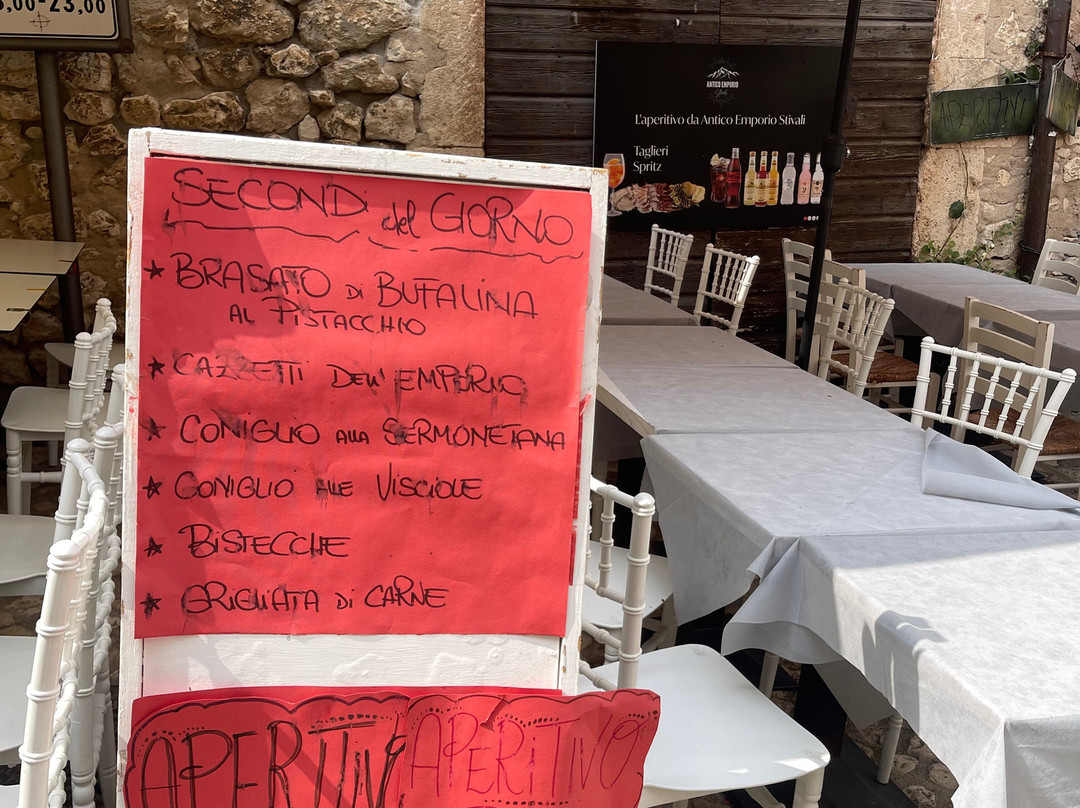 3,00-23,00
ANTICO EMPORIO
Stivali
L'aperitivo da Antico Emporio Stivali
Taglieri
Spritz
APERITIVI
SECONDi del GIORNO
★ BRASATO di BUFALINA
AL PISTACCHIO
★ CAZZETTI DELL'EMPORIO
★ CONIGLIO ALLA SERMONETANA
★ CONIGLIO ALLE VISCIOLE
★ BISTECCHE
★ GRIGLIATA di CARNE
APERITIVO
APERITIVO